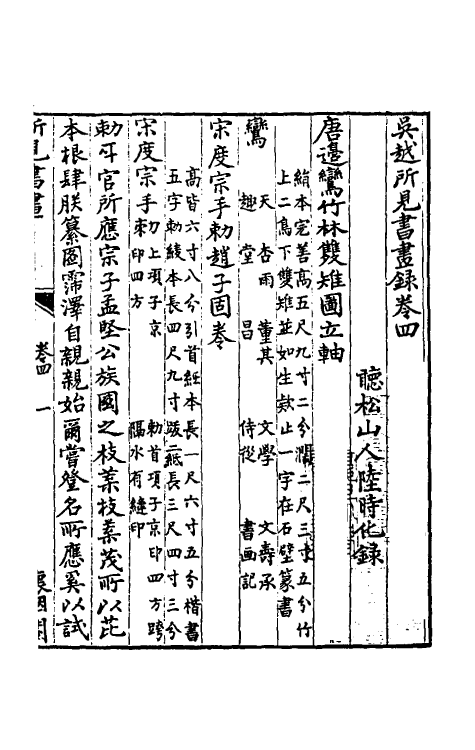 吳越所見書畫錄卷四
聽松山人陸時化錄
唐邊鸞竹林雙雉圖立軸
絹本完善高五尺九寸二分濶二尺三寸五分竹
上二鳥下雙雉並如生欵止一字在石壁篆書
鸞
天 杏雨 董其 文學 文壽承
趣堂 昌 侍從 書画記
宋度宗手勅趙子固卷
高皆六寸八分引首紙本長一尺六寸五分楷書
五字勅綾本長四尺九寸跋二紙長三尺四寸三分
宋度宗手勅
上項子京 勅首項子京印四方跨
印四方 隔水有縫印
勅 官所應宗子孟堅公族國之枝葉枝葉茂所以芘
本根肆朕纂圖霈澤自親親始爾嘗登名所應奚以試
所見書畫 卷四 一